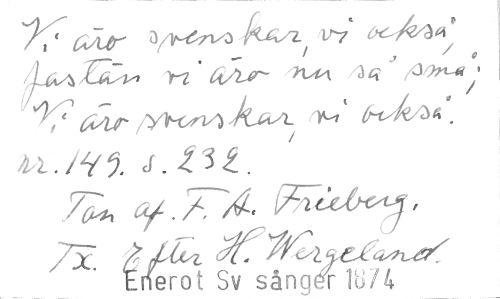 Vi äro svenskar, vi också,
fastän vi äro nu så små;
Vi äro svenskar, vi också.
nr. 149. s. 232.
Ton af. F. A. Frieberg.
Tx. Efter H. Wergeland.
Enerot Sv sånger 1874